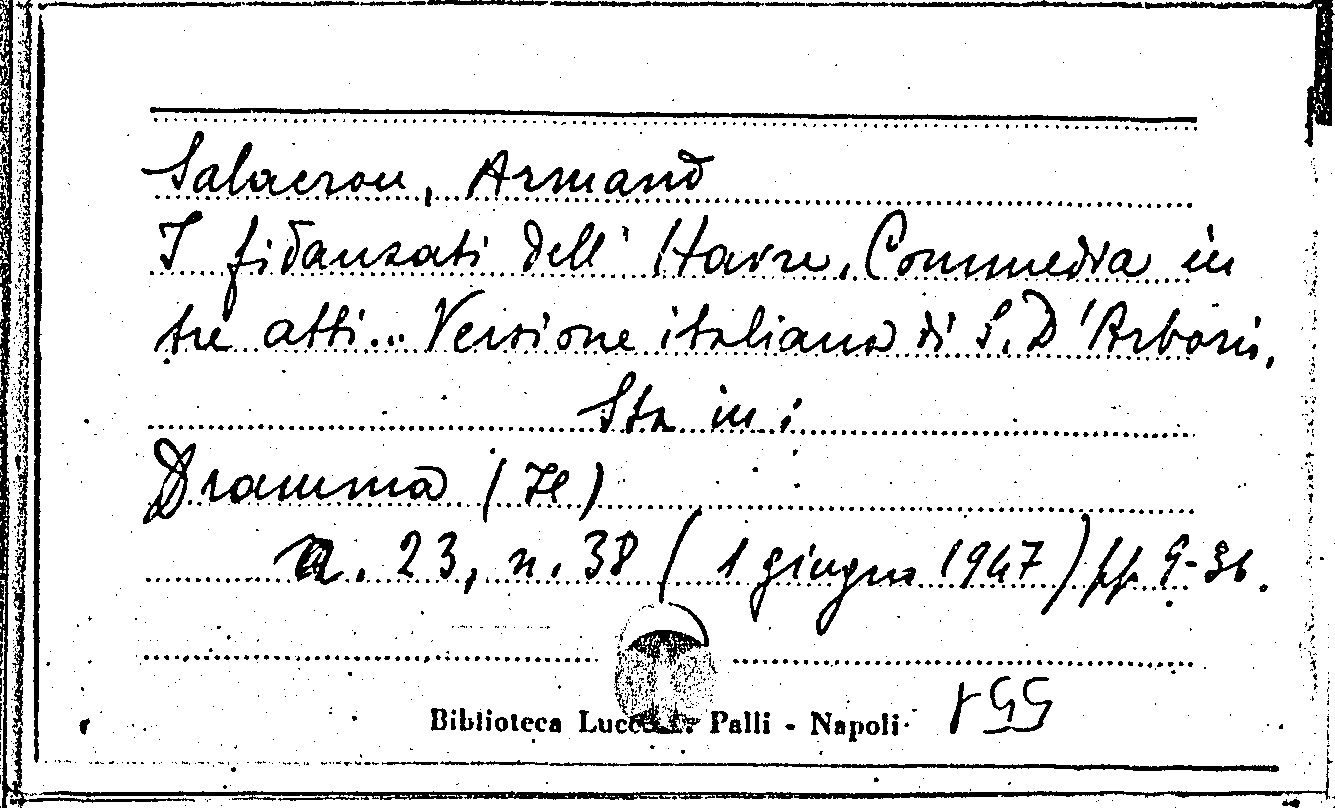 Salacrou, Armand
I fidanzati dell' Havre. Commedia in
tre atti... Versione italiana di S. D'Arborio.
Sta in:
Dramma (Il)
a. 23, n. 38 (1 giugno 1947) pp. 9-36.
Biblioteca Lucchesi Palli - Napoli